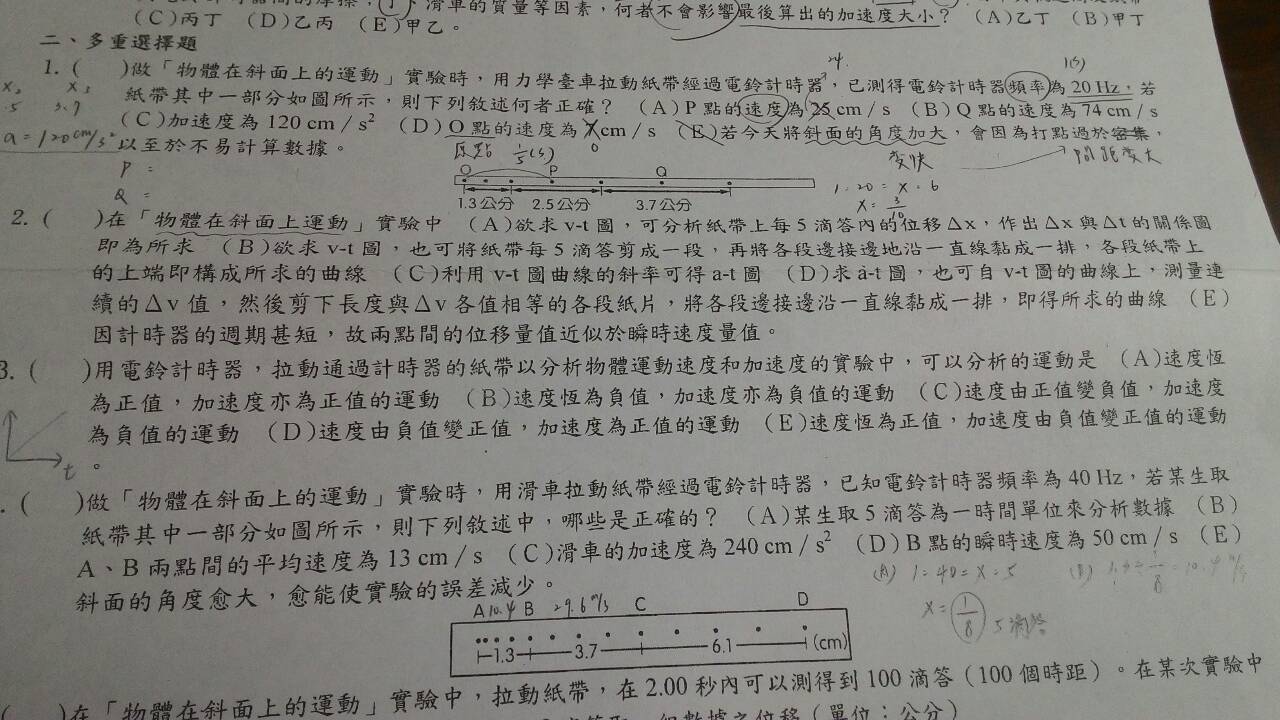 滑車的質量等因素，何者不會影響最後算出的加速度大小？ (A)乙丁 (B)甲丁
(C)丙丁 (D)乙丙 (E)甲乙。
二、多重選擇題
1. ( )做「物體在斜面上的運動」實驗時，用力學臺車拉動紙帶經過電鈴計時器，已測得電鈴計時器頻率為 20 Hz，若
紙帶其中一部分如圖所示，則下列敘述何者正確？ (A)P 點的速度為 25 cm / s (B)Q 點的速度為 74 cm / s
(C)加速度為 120 cm / s² (D)O 點的速度為 cm / s (E)若今天將斜面的角度加大，會因為打點過於密集，
a = 120cm/s² 以至於不易計算數據。
原點 1/5(s) 變快 間距變大
P =
Q =
O P Q
1.3公分 2.5公分 3.7公分
1:20 = x:6
x = 3/10
2. ( )在「物體在斜面上運動」實驗中 (A)欲求 v-t 圖，可分析紙帶上每 5 滴答內的位移 Δx，作出 Δx 與 Δt 的關係圖
即為所求 (B)欲求 v-t 圖，也可將紙帶每 5 滴答剪成一段，再將各段邊接邊地沿一直線黏成一排，各段紙帶上
的上端即構成所求的曲線 (C)利用 v-t 圖曲線的斜率可得 a-t 圖 (D)求 a-t 圖，也可自 v-t 圖的曲線上，測量連
續的 Δv 值，然後剪下長度與 Δv 各值相等的各段紙片，將各段邊接邊沿一直線黏成一排，即得所求的曲線 (E)
因計時器的週期甚短，故兩點間的位移量值近似於瞬時速度量值。
3. ( )用電鈴計時器，拉動通過計時器的紙帶以分析物體運動速度和加速度的實驗中，可以分析的運動是 (A)速度恆
為正值，加速度亦為正值的運動 (B)速度恆為負值，加速度亦為負值的運動 (C)速度由正值變負值，加速度
為負值的運動 (D)速度由負值變正值，加速度為正值的運動 (E)速度恆為正值，加速度由負值變正值的運動
。
t
. ( )做「物體在斜面上的運動」實驗時，用滑車拉動紙帶經過電鈴計時器，已知電鈴計時器頻率為 40 Hz，若某生取
紙帶其中一部分如圖所示，則下列敘述中，哪些是正確的？ (A)某生取 5 滴答為一時間單位來分析數據 (B)
A、B 兩點間的平均速度為 13 cm / s (C)滑車的加速度為 240 cm / s² (D)B 點的瞬時速度為 50 cm / s (E)
斜面的角度愈大，愈能使實驗的誤差減少。
(A) 1:40 = x:5
x = 1/8 5滴答
A 10.4 B 29.6 m/s C D
1.3 3.7 6.1 (cm)
( )在「物體在斜面上的運動」實驗中，拉動紙帶，在 2.00 秒內可以測得到 100 滴答（100 個時距）。在某次實驗中
一組數據之位移（單位：公分）